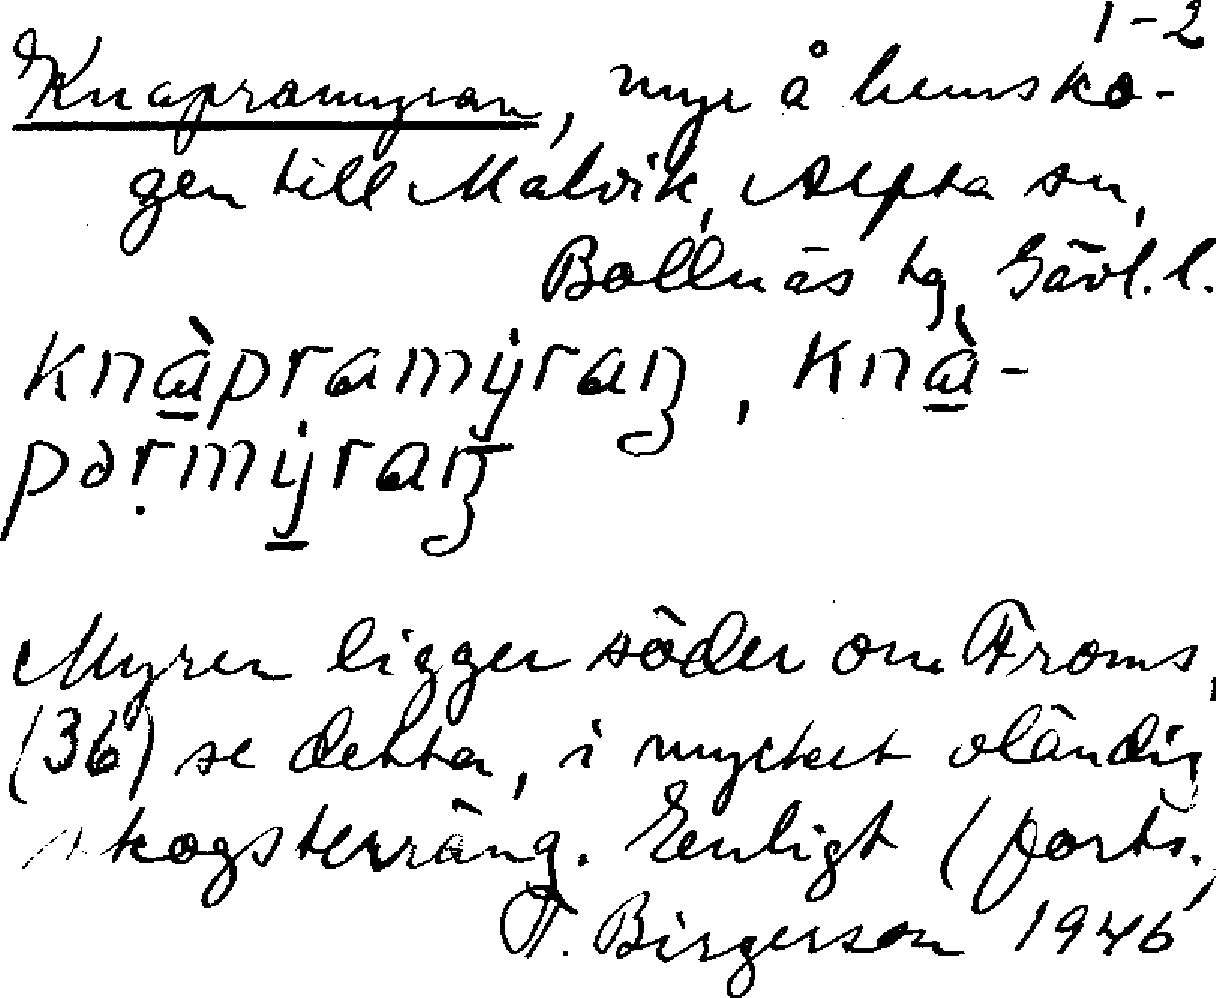 1-2
Knapramyran, myr å hemsko-
gen till Malvik, Alfta sn,
Bollnäs tg, Gävl. l.
knàpramýraɲ, knà-
pərmýraɲ
Myren ligger söder om Froms,
(36) se detta, i mycket oländig
skogsterräng. Enligt (forts.)
T. Birgerson 1946